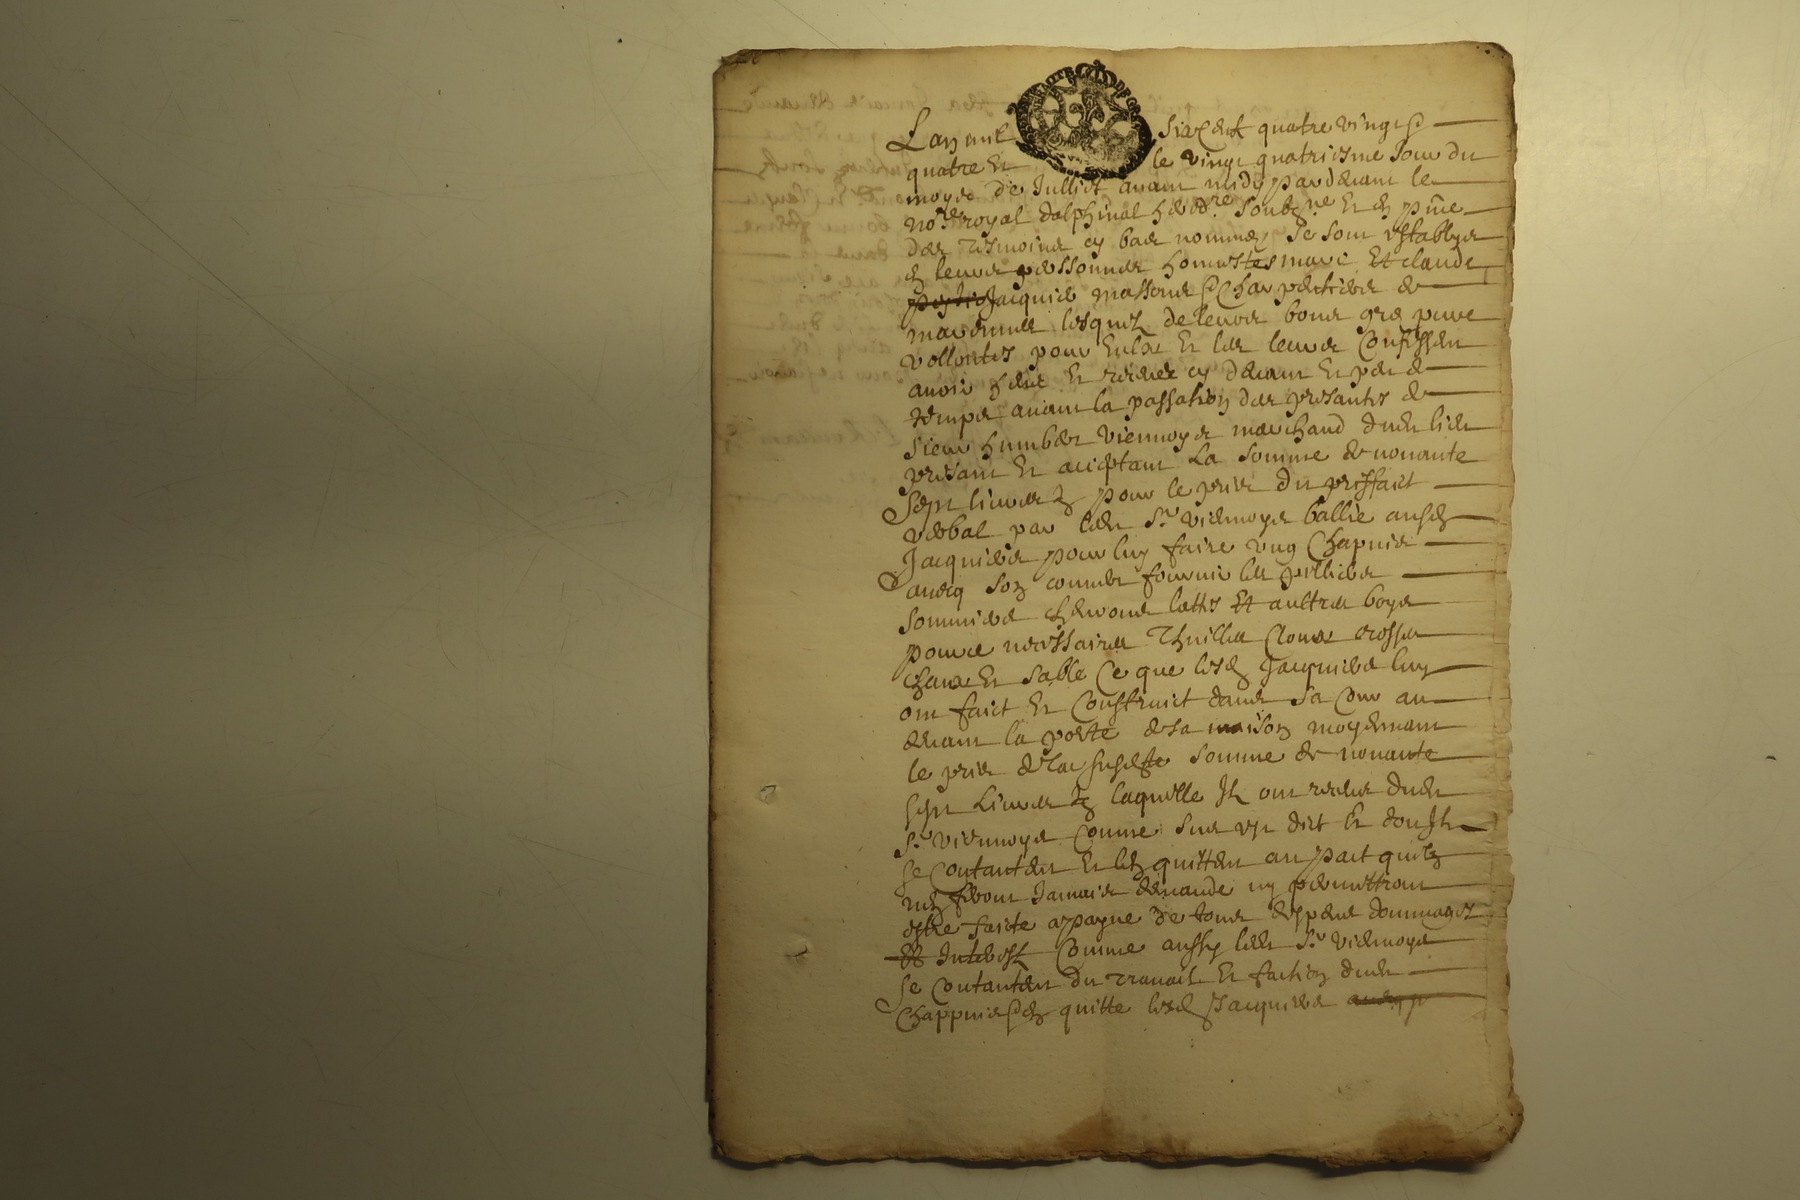 Lan mil sixcent quatre vingts
quatre et le vingt quatriesme Jour du
moys de Juillet avant midy pardevant le
no.re royal dalphinal soubz.ne et en p.nce
des tesmoins cy bas nommes se sont establys
en leurs personnes honnestes marc Et claude
Jacquier massons charpentiers de
lesquels de leurs bons gre pure
vollontes pour eulx et les leurs Confessent
avoir heu et receu cy devant et peu de
temps avant la passation des presantes de
sieur humbert viennoys marchand dudit lieu
presant et acceptant La somme de nonante
sept livres tz pour le pris du prisfaict
verbal par ledit Sr viennoys ballie ausd
Jacquiers pour luy faire ung Chapuis
avecq son couvert fournir les pilliers
sommiers chevrons latts Et aultres boys
pour ce necessaires Thuilles Clous crosses
chaux et sable Ce que lesd Jacquiers luy
ont faict et Construict dans sa Cour au
devant la porte de sa maison moyennant
le pris de la susdte somme de nonante
sept Livres tz laquelle Ilz ont receu dudit
Sr viennoys Comme sus est dict et dont Ilz
se Contantent et len quittent au pact quilz
nen feront Jamais demande ny permettront
estre faicte a payne de tous despens dommages
et Interestz Comme aussy ledit Sr viennoys
se Contantent du travail et faction dudit
Chappuis et quitte lesd Jacquiers